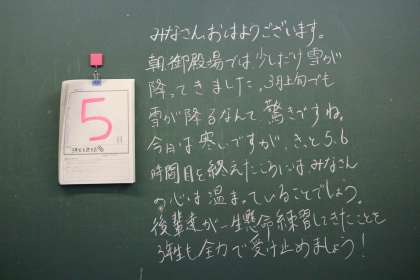 みなさん、おはようございます。
朝、御殿場では少しだけ雪が
降ってきました。3月上旬でも
雪が降るなんて、驚きですね。
今日は寒いですが、きっと5.6
時間目を終えたころにはみなさん
の心は温まっていることでしょう。
後輩達が一生懸命練習してきたことを
3年生も全力で受け止めましょう！
5
日